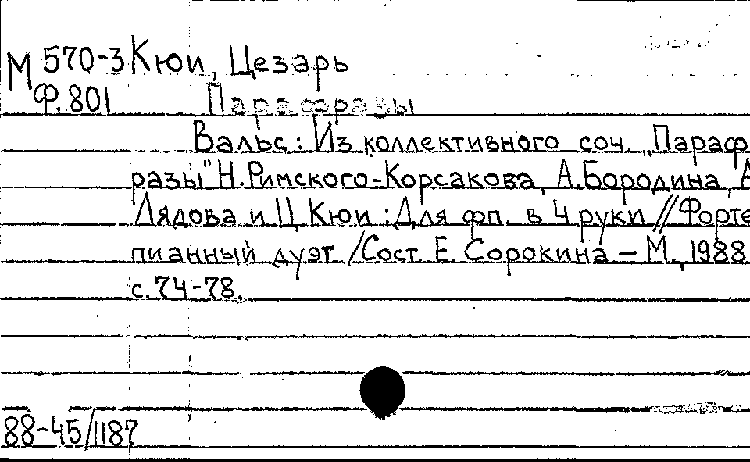 М 570-3 Кюи, Цезарь
Ф. 801 Парафразы
Вальс: Из коллективного соч. „Параф
разы" Н. Римского-Корсакова, А. Бородина, А
Лядова и Ц. Кюи : Для фп. в 4 руки // Форте
пианный дуэт / Сост. Е. Сорокина — М., 1988
с. 74-78.
88-45/1187